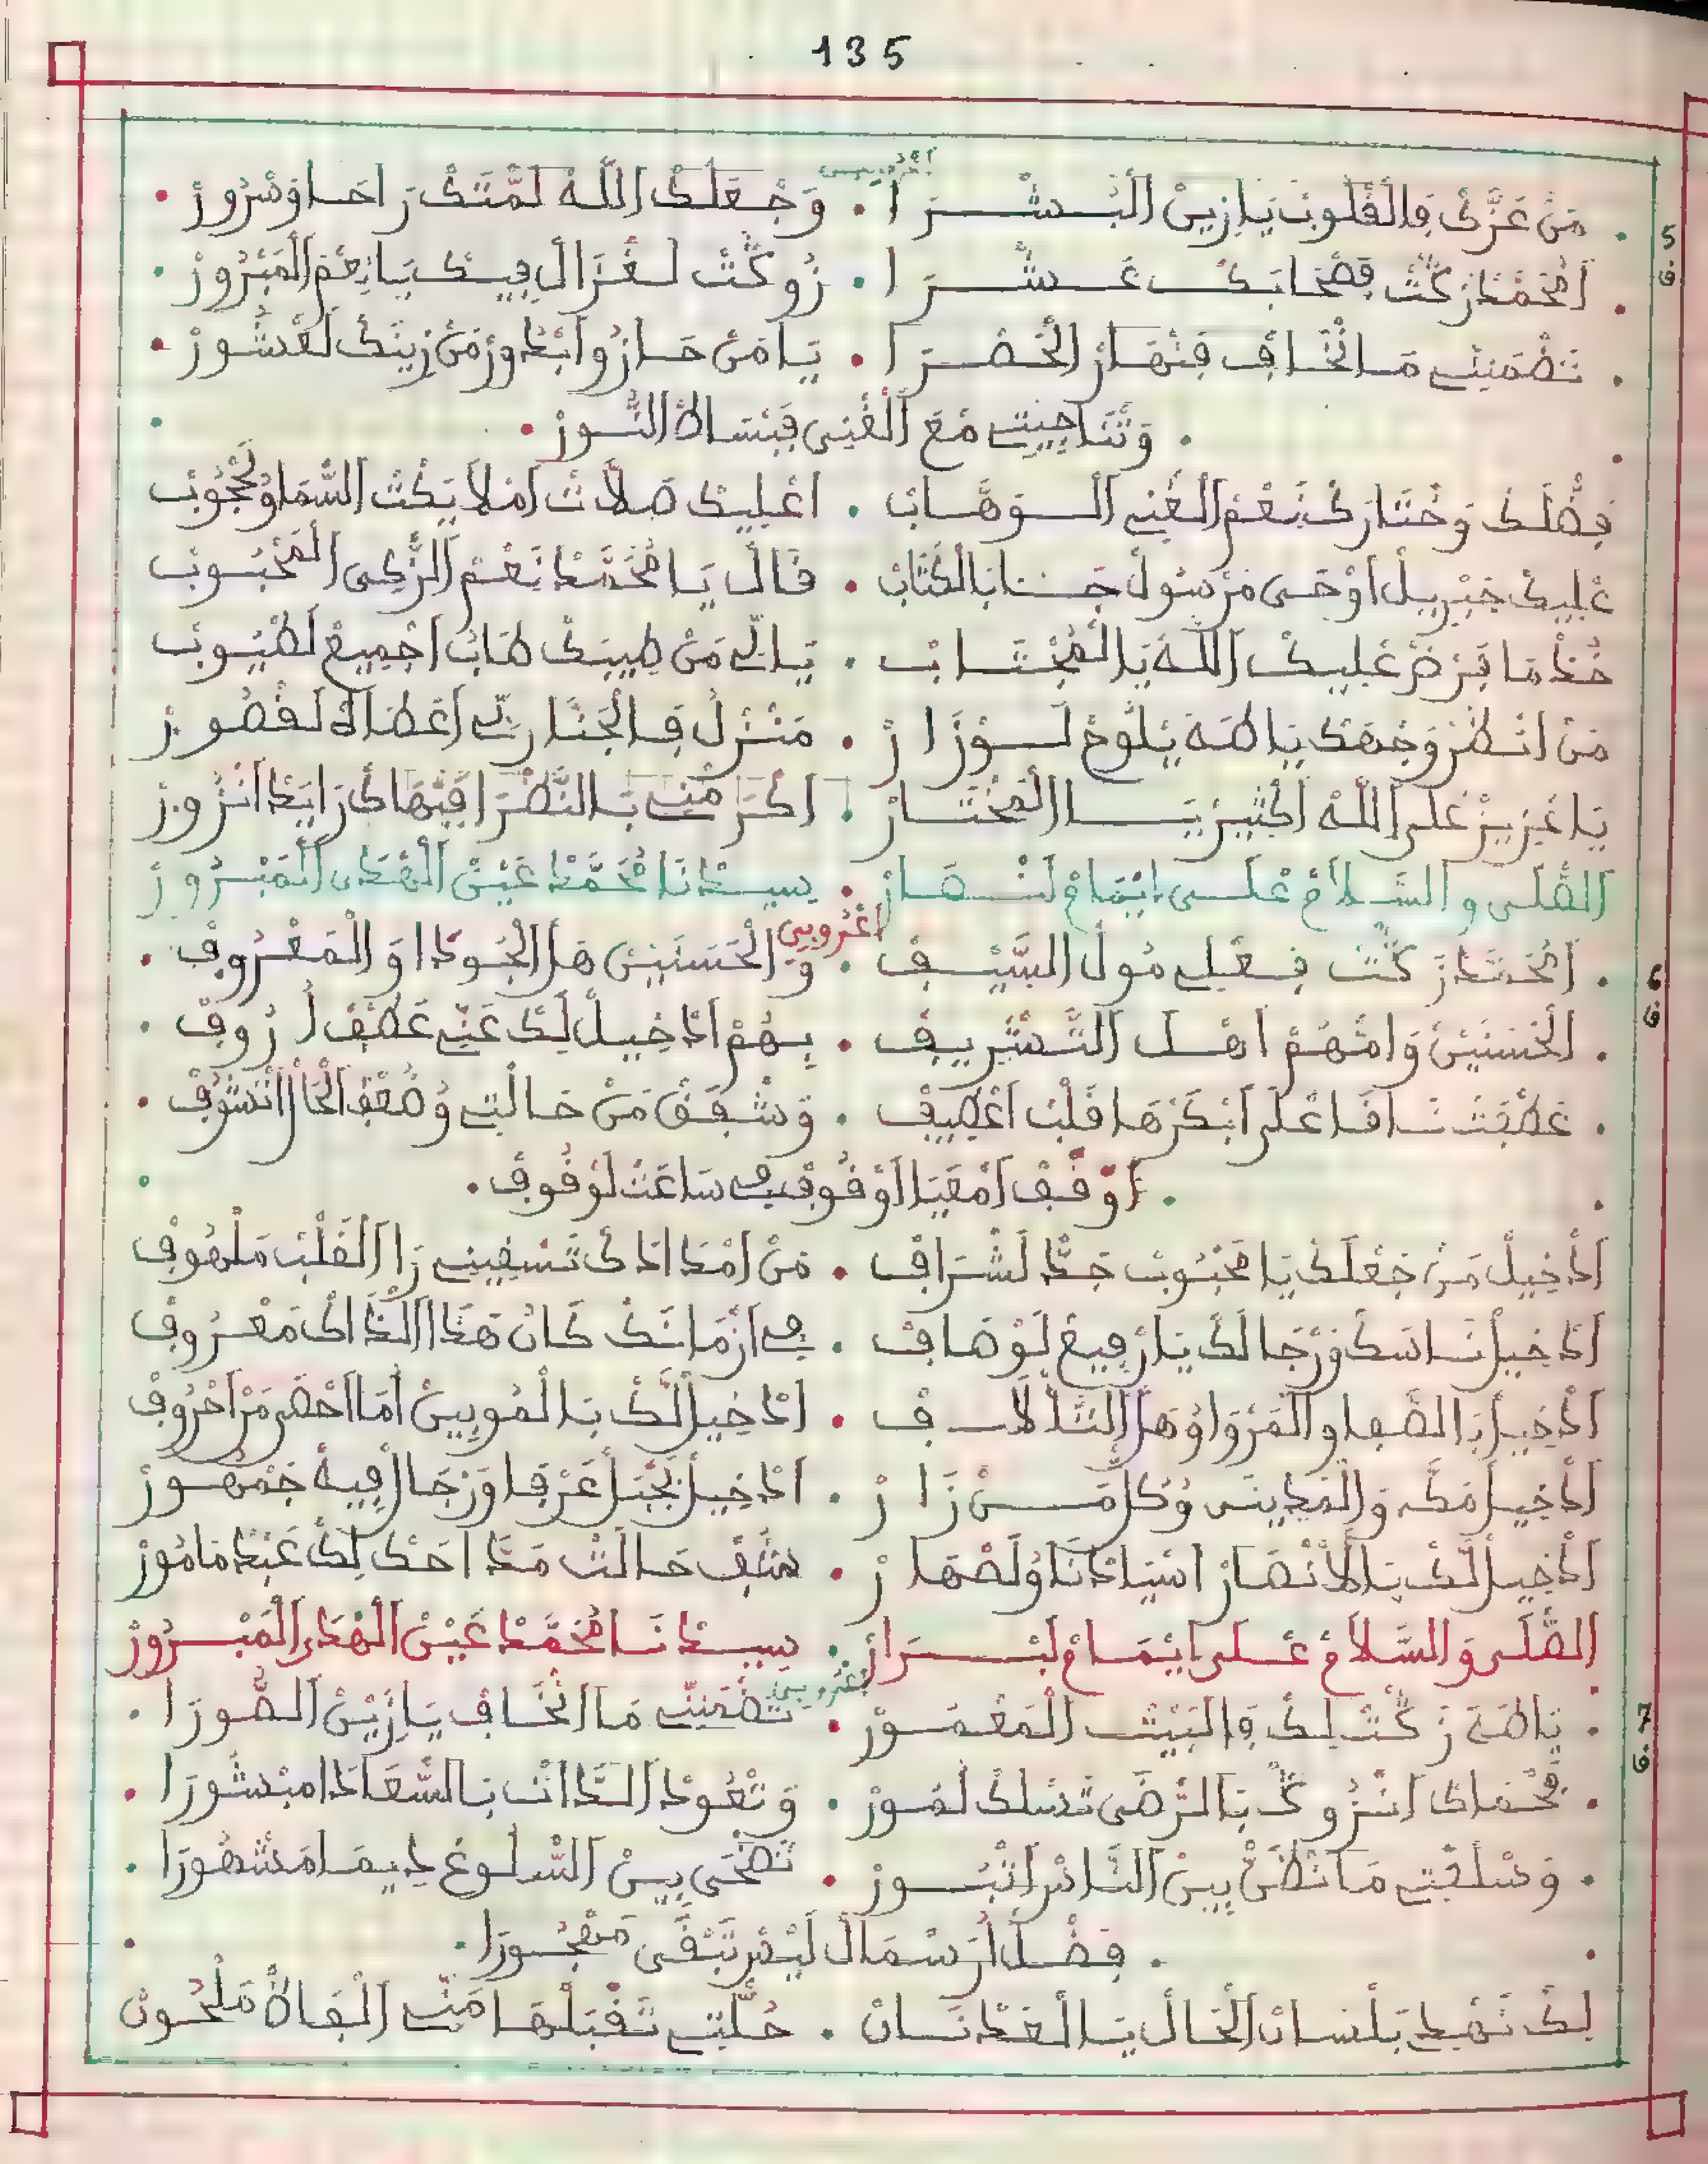 135
اعروبي
5 ف
مَنْ عَزَّكْ فِالْقْلُوبْ يَا زِينْ الْبُشْرَا . وَجْعَلْكْ اللَّهْ لَمَّتَكْ رَاحَا وَسْرُورْ
أَمُحَمَّدْ زَكْتْ فَصْحَابَكْ عَشْرَا . زُوكْتْ لَغْزَالْ فِيكْ يَا نِعْمْ الْمَبْرُورْ
تَضْمَنِّي مَا انْخَافْ فَنْهَارْ الْحَضْرَا . يَا مَنْ حَازُوا ابْدُورْ مَنْ زِينَكْ لَعْشُورْ
وَتْنَاجِيتِي مْعَ الْغْنِي فَبْسَاطْ النُّورْ
فَضْلَكْ وَخْتَارَكْ نَعْمْ الْغْنِي الْوَهَّابْ . اعْلِيكْ صَلَاتْ امْلَايَكْتْ السَّمَا وُحْجُوبْ
عْلِيكْ جَبْرِيلْ أَوْحَى مَرْسُولْ جَانَا بَالْكْتَابْ . قَالْ يَا مُحَمَّدْ نَعْمْ الزَّكِي الْمَحْبُوبْ
خُذْ مَا فَرْضْ عْلِيكْ اللَّهْ يَا الْمُجْتَابْ . يَا لِّي مَنْ طِيبَكْ طَابْ اجْمِيعْ لَطْيُوبْ
مَنْ انْظَرْ وَجْهَكْ يَا طَهَ يْلُوحْ لَوْزَارْ . مَنْزَلْ فِالْجَنَّا رَبِّي اعْطَاهْ لَقْصُورْ
يَا عْزِيزْ عْلَى اللَّهْ اكْثِيرْ يَا الْمُخْتَارْ . اكْرَمْنِي بَالنَّظْرَا فَبْهَاكْ رَايَدْ انْزُورْ
الصَّلَى والسَّلَامْ عْلَى ايْمَامْ لَنْهَارْ . سِيدْنَا مُحَمَّدْ عَيْنْ الْهْدَى الْمَبْرُورْ
اعْرُوبِي
6 ف
أَمُحَمَّدْ زَكْتْ فِعْلِي مُولْ السَّيْفْ . وَالْحَسَنِينْ هَلْ الْجُودَا وَالْمَعْرُوفْ
الْحَسَنِينْ وَامْهُمْ اهْلْ التَّشْرِيفْ . بِهُمْ ادْخِيلْ لِكْ عَنِّي عَطْفْ أرُوفْ
عَطْفَتْ نَاقَا عْلَى ابْكَرْهَا قَلْبْ اعْطِيفْ . وَشْفَقْ مَنْ حَالْتِي وُضُعْفْ الْحَالْ انْشُوفْ
أَوْقَفْ أَمْعَيَا أَوْقُوفْ فِي سَاعَتْ لَوْقُوفْ
ادْخِيلْ مَنْ جَعْلَكْ يَا مَحْبُوبْ جَدّْ لَشْرَافْ . مَنْ امْدَادَاكْ تَسْقِينِي رَا الْقَلْبْ مَلْهُوفْ
ادْخِيلْ نَاسَكْ وَرْجَالَكْ يَا رْفِيعْ لَوْصَافْ . فِي ازْمَانَكْ كَانْ هَذَا الْذَاكْ مَعْرُوفْ
ادْخِيلْ بَالصّْفَا والْمَرْوَا وُهَلْ التّْلَافْ . ادْخِيلْ لَكْ بَالْمُوبِينْ أَمَا احْضَرْ مَنْ احْرُوفْ
ادْخِيلْ مَكَّه وَالْمَدِينَى وُكُلّْ مَنْ زَارْ . ادْخِيلْ بَجْبَلْ عَرْفَا وَرْجَالْ فِيهْ جَمْهُورْ
ادْخِيلْ لَكْ بَالْأَنْصَارْ اسْيَادْنَا وُلَصْهَارْ . شَفْ حَالَتْ مَدَّاحَكْ لِكْ عَبْدْ مَامُورْ
الصَّلَى وَالسَّلَامْ عْلَى ايْمَامْ لَبْرَارْ . سِيدْنَا مُحَمَّدْ عَيْنْ الْهْدَى الْمَبْرُورْ
اعْرُوبِي
7 ف
يَا طَهَ زَكْتْ لِكْ وَالْبَيْتْ الْمَعْمُورْ . تَضْمَنِّي مَا انْخَافْ يَا زِيْنْ الصُّورَا
فَحْمَاكْ انْزُوكْ بَالرّْضَى تَسْلَكْ لُمُورْ . وَتْعُودْ الدَّاتْ بَالسّْعَادَا مَبْشُورَا
وَسْلَعْتِي مَا تْظَنّْ بِينْ النَّاسْ اتْبُورْ . تَضْحَى بِينْ السّْلُوعْ دِيمَا مَشْهُورَا
فَضْلْ الرَّسْمَالْ لَيْسْ تَبْقَى مَهْجُورَا
لِكْ نَهْدِي بَلْسَانْ الْحَالْ يَا الْعَدْنَانْ . حُلْتِي تَقْبَلْهَا مَنِّي الْفَاظْ مَلْحُونْ